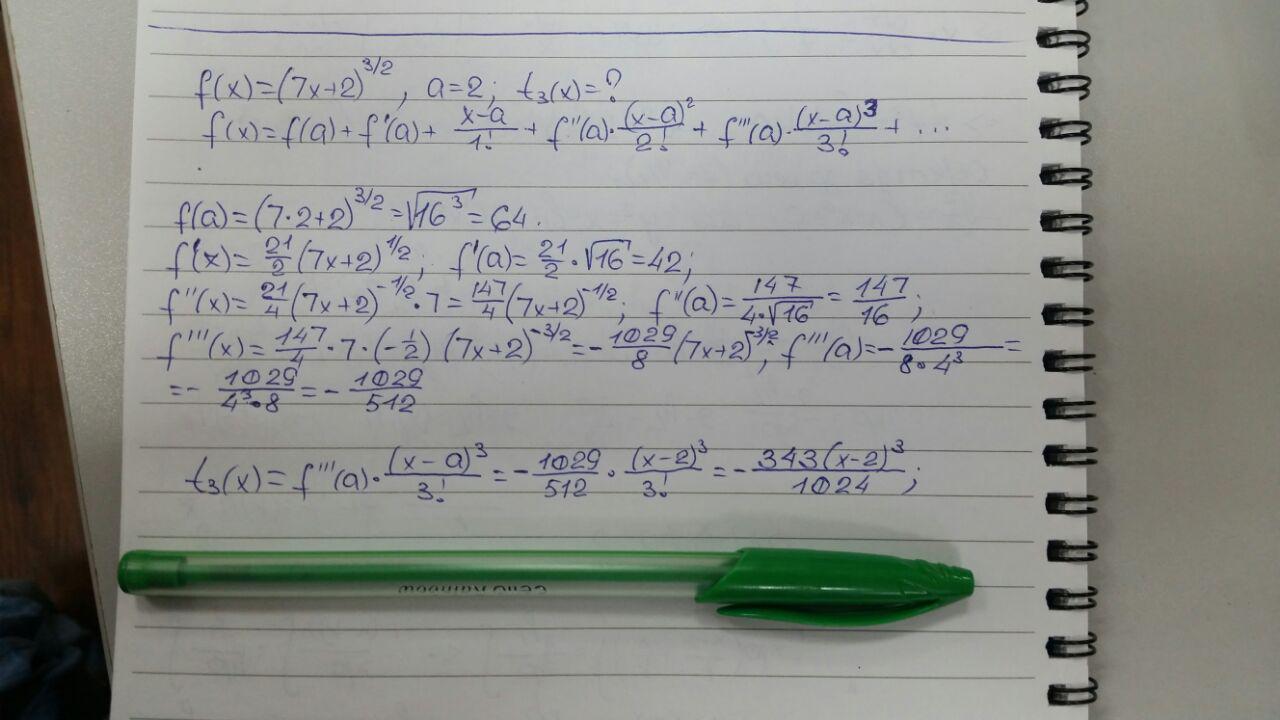 f(x)=(7x+2)^{3/2}, a=2; t₃(x)=?
f(x)=f(a)+f'(a)+ \frac{x-a}{1!} + f''(a)·\frac{(x-a)^2}{2!} + f'''(a)·\frac{(x-a)^3}{3!} + ...
f(a)=(7·2+2)^{3/2}=\sqrt{16^3}=64.
f'(x)=\frac{21}{2}(7x+2)^{1/2}; f'(a)=\frac{21}{2}·\sqrt{16}=42;
f''(x)=\frac{21}{4}(7x+2)^{-1/2}·7=\frac{147}{4}(7x+2)^{-1/2}; f''(a)=\frac{147}{4·\sqrt{16}}=\frac{147}{16};
f''''(x)=\frac{147}{4}·7·(-\frac{1}{2}) (7x+2)^{-3/2}=-\frac{1029}{8}(7x+2)^{-3/2}, f''''(a)=-\frac{1029}{8·4^3}=
=-\frac{1029}{4^3·8}=-\frac{1029}{512}
t₃(x)=f'''(a)·\frac{(x-a)^3}{3!}=-\frac{1029}{512}·\frac{(x-2)^3}{3!}=-\frac{343(x-2)^3}{1024};